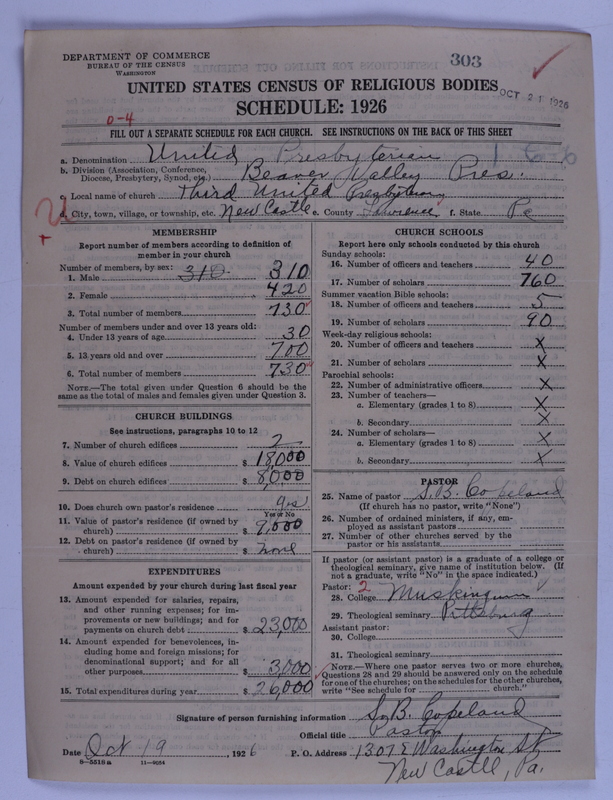 303
DEPARTMENT OF COMMERCE
BUREAU OF THE CENSUS
WASHINGTON
UNITED STATES CENSUS OF RELIGIOUS BODIES
OCT 21 1926
SCHEDULE: 1926
0-4
FILL OUT A SEPARATE SCHEDULE FOR EACH CHURCH. SEE INSTRUCTIONS ON THE BACK OF THIS SHEET
a. Denomination United Presbyterian 166
b. Division (Association, Conference, Diocese, Presbytery, Synod, etc.) Beaver Valley Pres.
c. Local name of church Third United Presbyterian
d. City, town, village, or township, etc. New Castle e. County Lawrence f. State Pa
MEMBERSHIP
Report number of members according to definition of
member in your church
Number of members, by sex:
1. Male 310 310
2. Female 420
3. Total number of members 730
Number of members under and over 13 years old:
4. Under 13 years of age 30
5. 13 years old and over 700
6. Total number of members 730
NOTE.—The total given under Question 6 should be
same as the total of males and females given under Question 3.
CHURCH BUILDINGS
See instructions, paragraphs 10 to 12
7. Number of church edifices 2
8. Value of church edifices $ 18,000
9. Debt on church edifices $ 8,000
10. Does church own pastor's residence? yes
Yes or No
11. Value of pastor's residence (if owned by
church) $ 9,000
12. Debt on pastor's residence (if owned by
church) $ none
EXPENDITURES
Amount expended by your church during last fiscal year
13. Amount expended for salaries, repairs,
and other running expenses; for im-
provements or new buildings; and for
payments on church debt $ 23,000
14. Amount expended for benevolences, in-
cluding home and foreign missions; for
denominational support; and for all
other purposes $ 3,000
15. Total expenditures during year $ 26,000
CHURCH SCHOOLS
Report here only schools conducted by this church
Sunday schools:
16. Number of officers and teachers 40
17. Number of scholars 760
Summer vacation Bible schools:
18. Number of officers and teachers 5
19. Number of scholars 90
Week-day religious schools:
20. Number of officers and teachers X
21. Number of scholars X
Parochial schools:
22. Number of administrative officers X
23. Number of teachers—
a. Elementary (grades 1 to 8) X
b. Secondary X
24. Number of scholars—
a. Elementary (grades 1 to 8) X
b. Secondary X
PASTOR
25. Name of pastor S. B. Copeland
(If church has no pastor, write "None")
26. Number of ordained ministers, if any, em-
ployed as assistant pastors
27. Number of other churches served by the
pastor or his assistants
If pastor (or assistant pastor) is a graduate of a college or
theological seminary, give name of institution below. (If
not a graduate, write "No" in the space indicated.)
Pastor: 2
28. College Muskingum
29. Theological seminary Pittsburg
Assistant pastor:
30. College
31. Theological seminary
NOTE.—Where one pastor serves two or more churches,
Questions 28 and 29 should be answered only on the schedule
for one of the churches; on the schedules for the other churches,
write "See schedule for church."
Signature of person furnishing information S. B. Copeland
Official title Pastor
Date Oct 19, 1926 P. O. Address 1307 E Washington St
8-5518a 11-9054
New Castle, Pa.